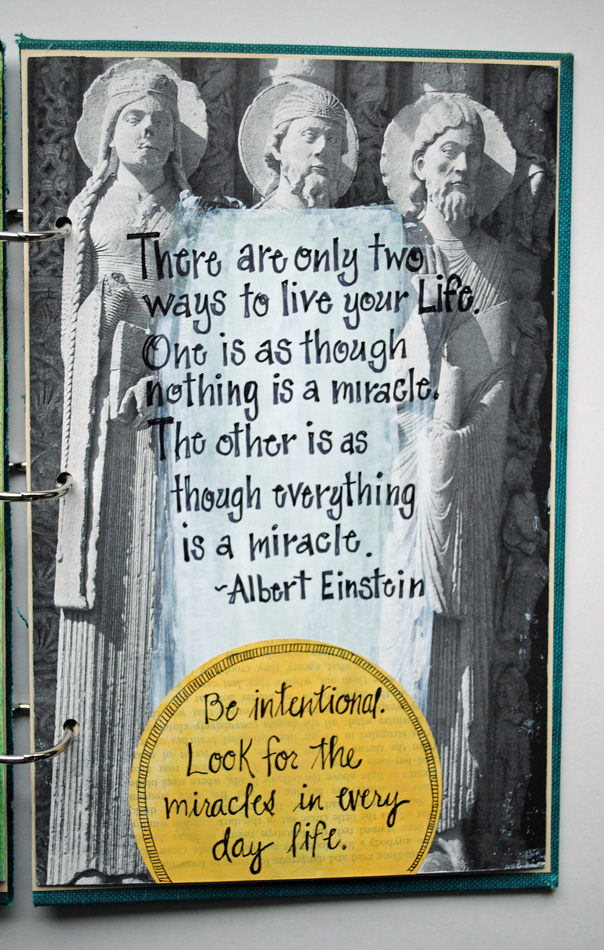 There are only two
ways to live your Life.
One is as though
nothing is a miracle.
The other is as
though everything
is a miracle.
~Albert Einstein
Be intentional.
Look for the
miracles in every
day life.